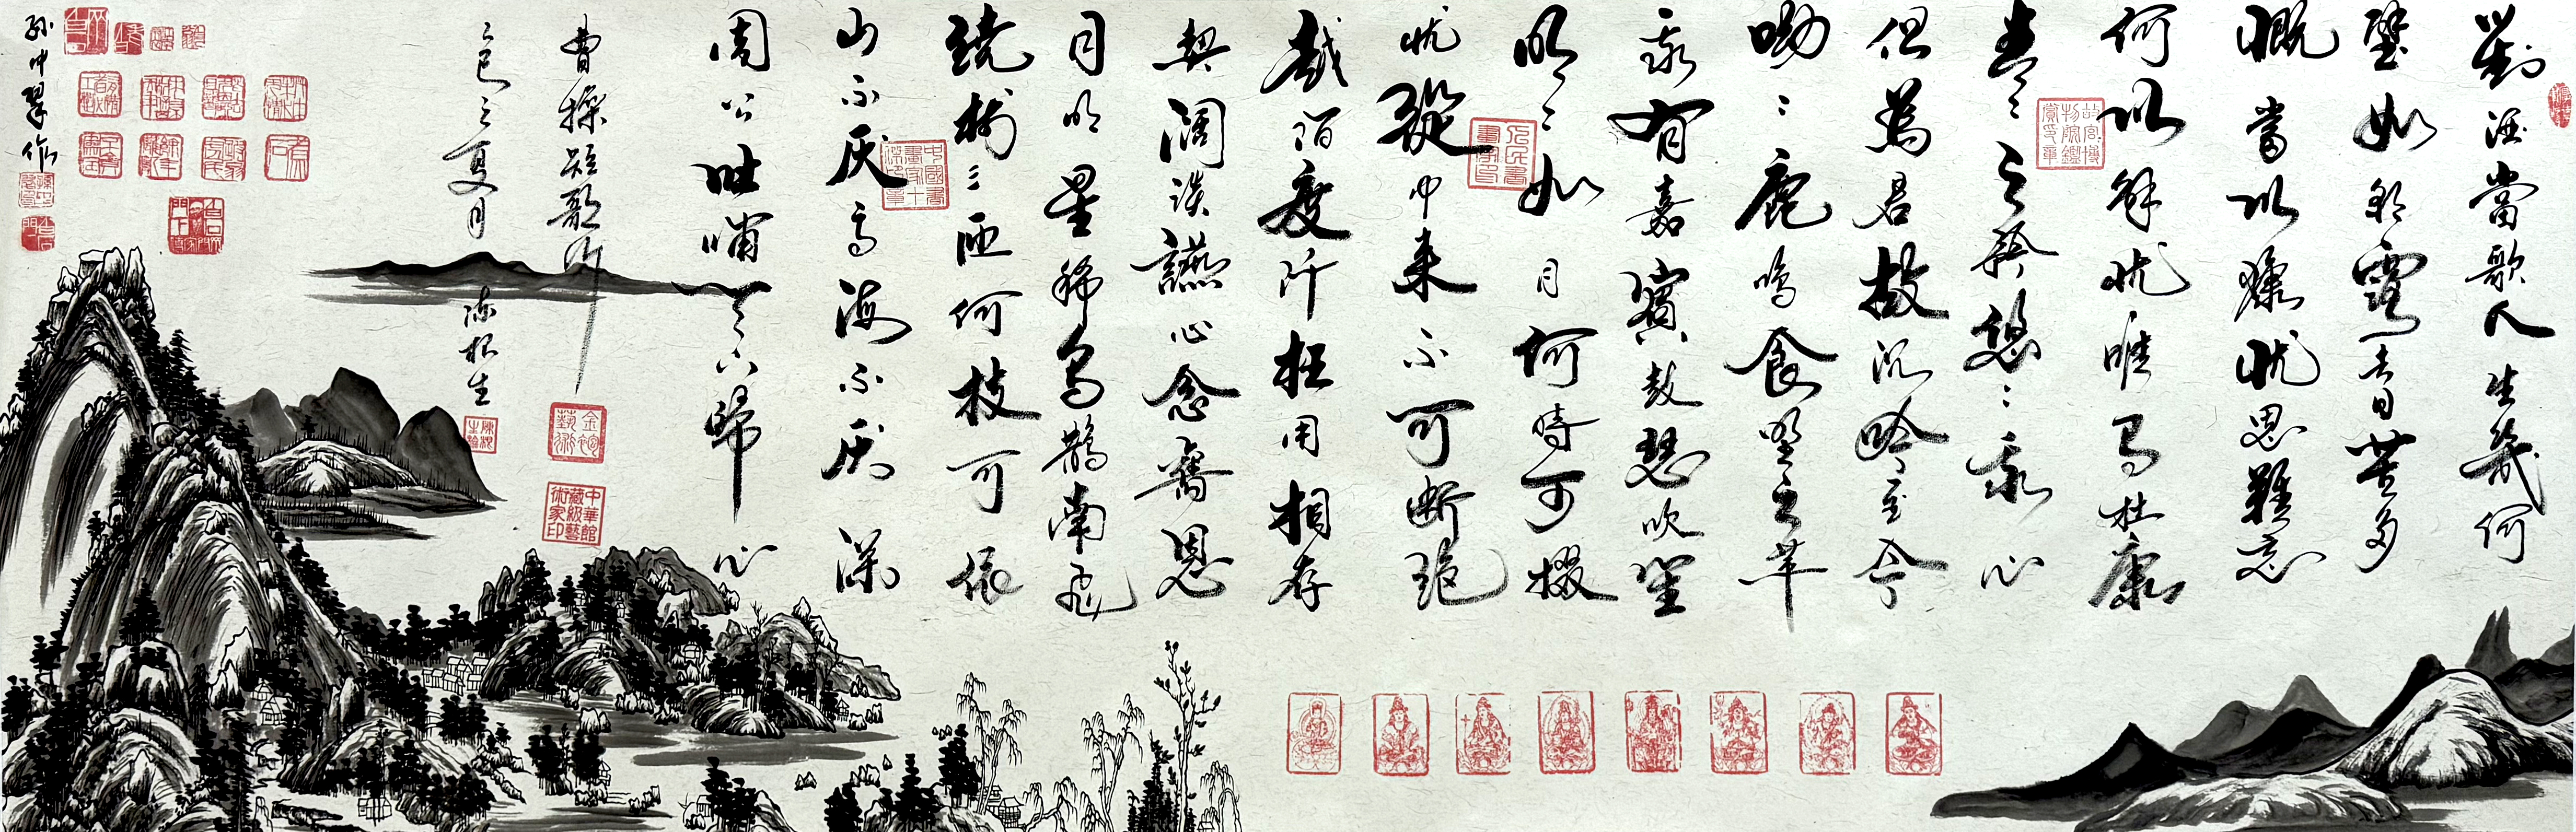 對酒當歌人生幾何
譬如朝露去日苦多
慨當以慷忧思難忘
何以解忧唯有杜康
青〻子衿悠〻我心
但為君故沉吟至今
呦〻鹿鳴食野之苹
我有嘉賓鼓瑟吹笙
明〻如月何時可掇
忧從中來不可斷絕
越陌度阡枉用相存
契闊談讌心念舊恩
月明星稀烏鵲南飛
繞樹三匝何枝可依
山不厭高海不厭深
周公吐哺天下歸心
曹操短歌行
乙巳之夏月 陳根生
孙中翠作
中華館藏級藝術家印